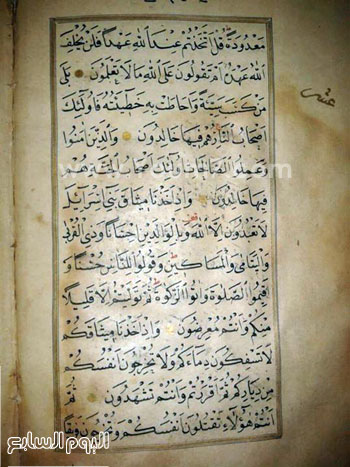 معدودة قل أتخذتم عند الله عهدا فلن يخلف
الله عهده أم تقولون على الله ما لا تعلمون بلى
من كسب سيئة وأحاطت به خطيئته فأولئك
أصحاب النار هم فيها خالدون والذين آمنوا
وعملوا الصالحات أولئك أصحاب الجنة هم
فيها خالدون وإذ أخذنا ميثاق بني إسرائيل
لا تعبدون إلا الله وبالوالدين إحسانا وذي القربى
واليتامى والمساكين وقولوا للناس حسنا و
أقيموا الصلوة وآتوا الزكوة ثم توليتم إلا قليلا
منكم وأنتم معرضون وإذ أخذنا ميثاقكم
لا تسفكون دماءكم ولا تخرجون أنفسكم
من دياركم ثم أقررتم وأنتم تشهدون ثم
أنتم هؤلاء تقتلون أنفسكم وتخرجون فريقا
عشر
اليوم السابع